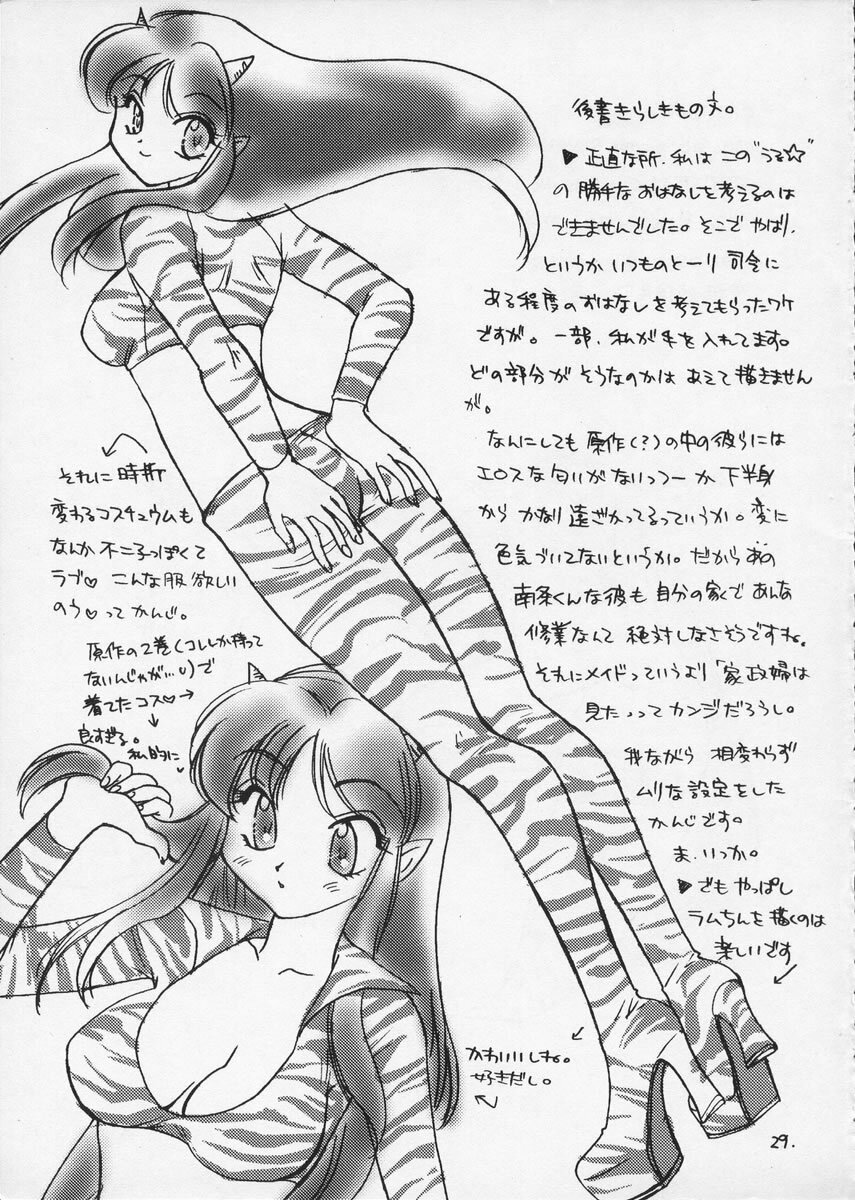 後書きらしきもの文。
▶正直な所、私は この“うる☆”
の 勝手な おはなしを考えるのは
できませんでした。そこで やはり、
というか いつものとーり 司令に
ある程度の おはなし を 考えてもらったワケ
ですが。一部、私が手を入れてます。
どの部分が そうなのかは あえて描きません
が。
なんにしても 原作(?)の中の彼らには
エロスな匂いがないっつーか 下半身
から かなり遠ざかってるっていうか。変に
色気づいてないというか。だからあの
南条くんな彼も 自分の家で あんな
修業なんて 絶対しなさそうですね。
それにメイドっていうより「家政婦は
見た」ってカンジだろうし。
我ながら 相変わらず
ムリな設定をした
かんじです。
ま、いっか。
▶でも やっぱし
ラムちんを描くのは
楽しいです
それに 時折
変わるコスチュウムも
なんか 不二子っぽくて
ラブ♡ こんな服 欲しい
のう♡って かんじ。
原作の2巻(コレしか持って
ないんじゃが…)で
着てたコス♡→
良すぎる。
私的に
かわいいしね。
好きだし。
29.